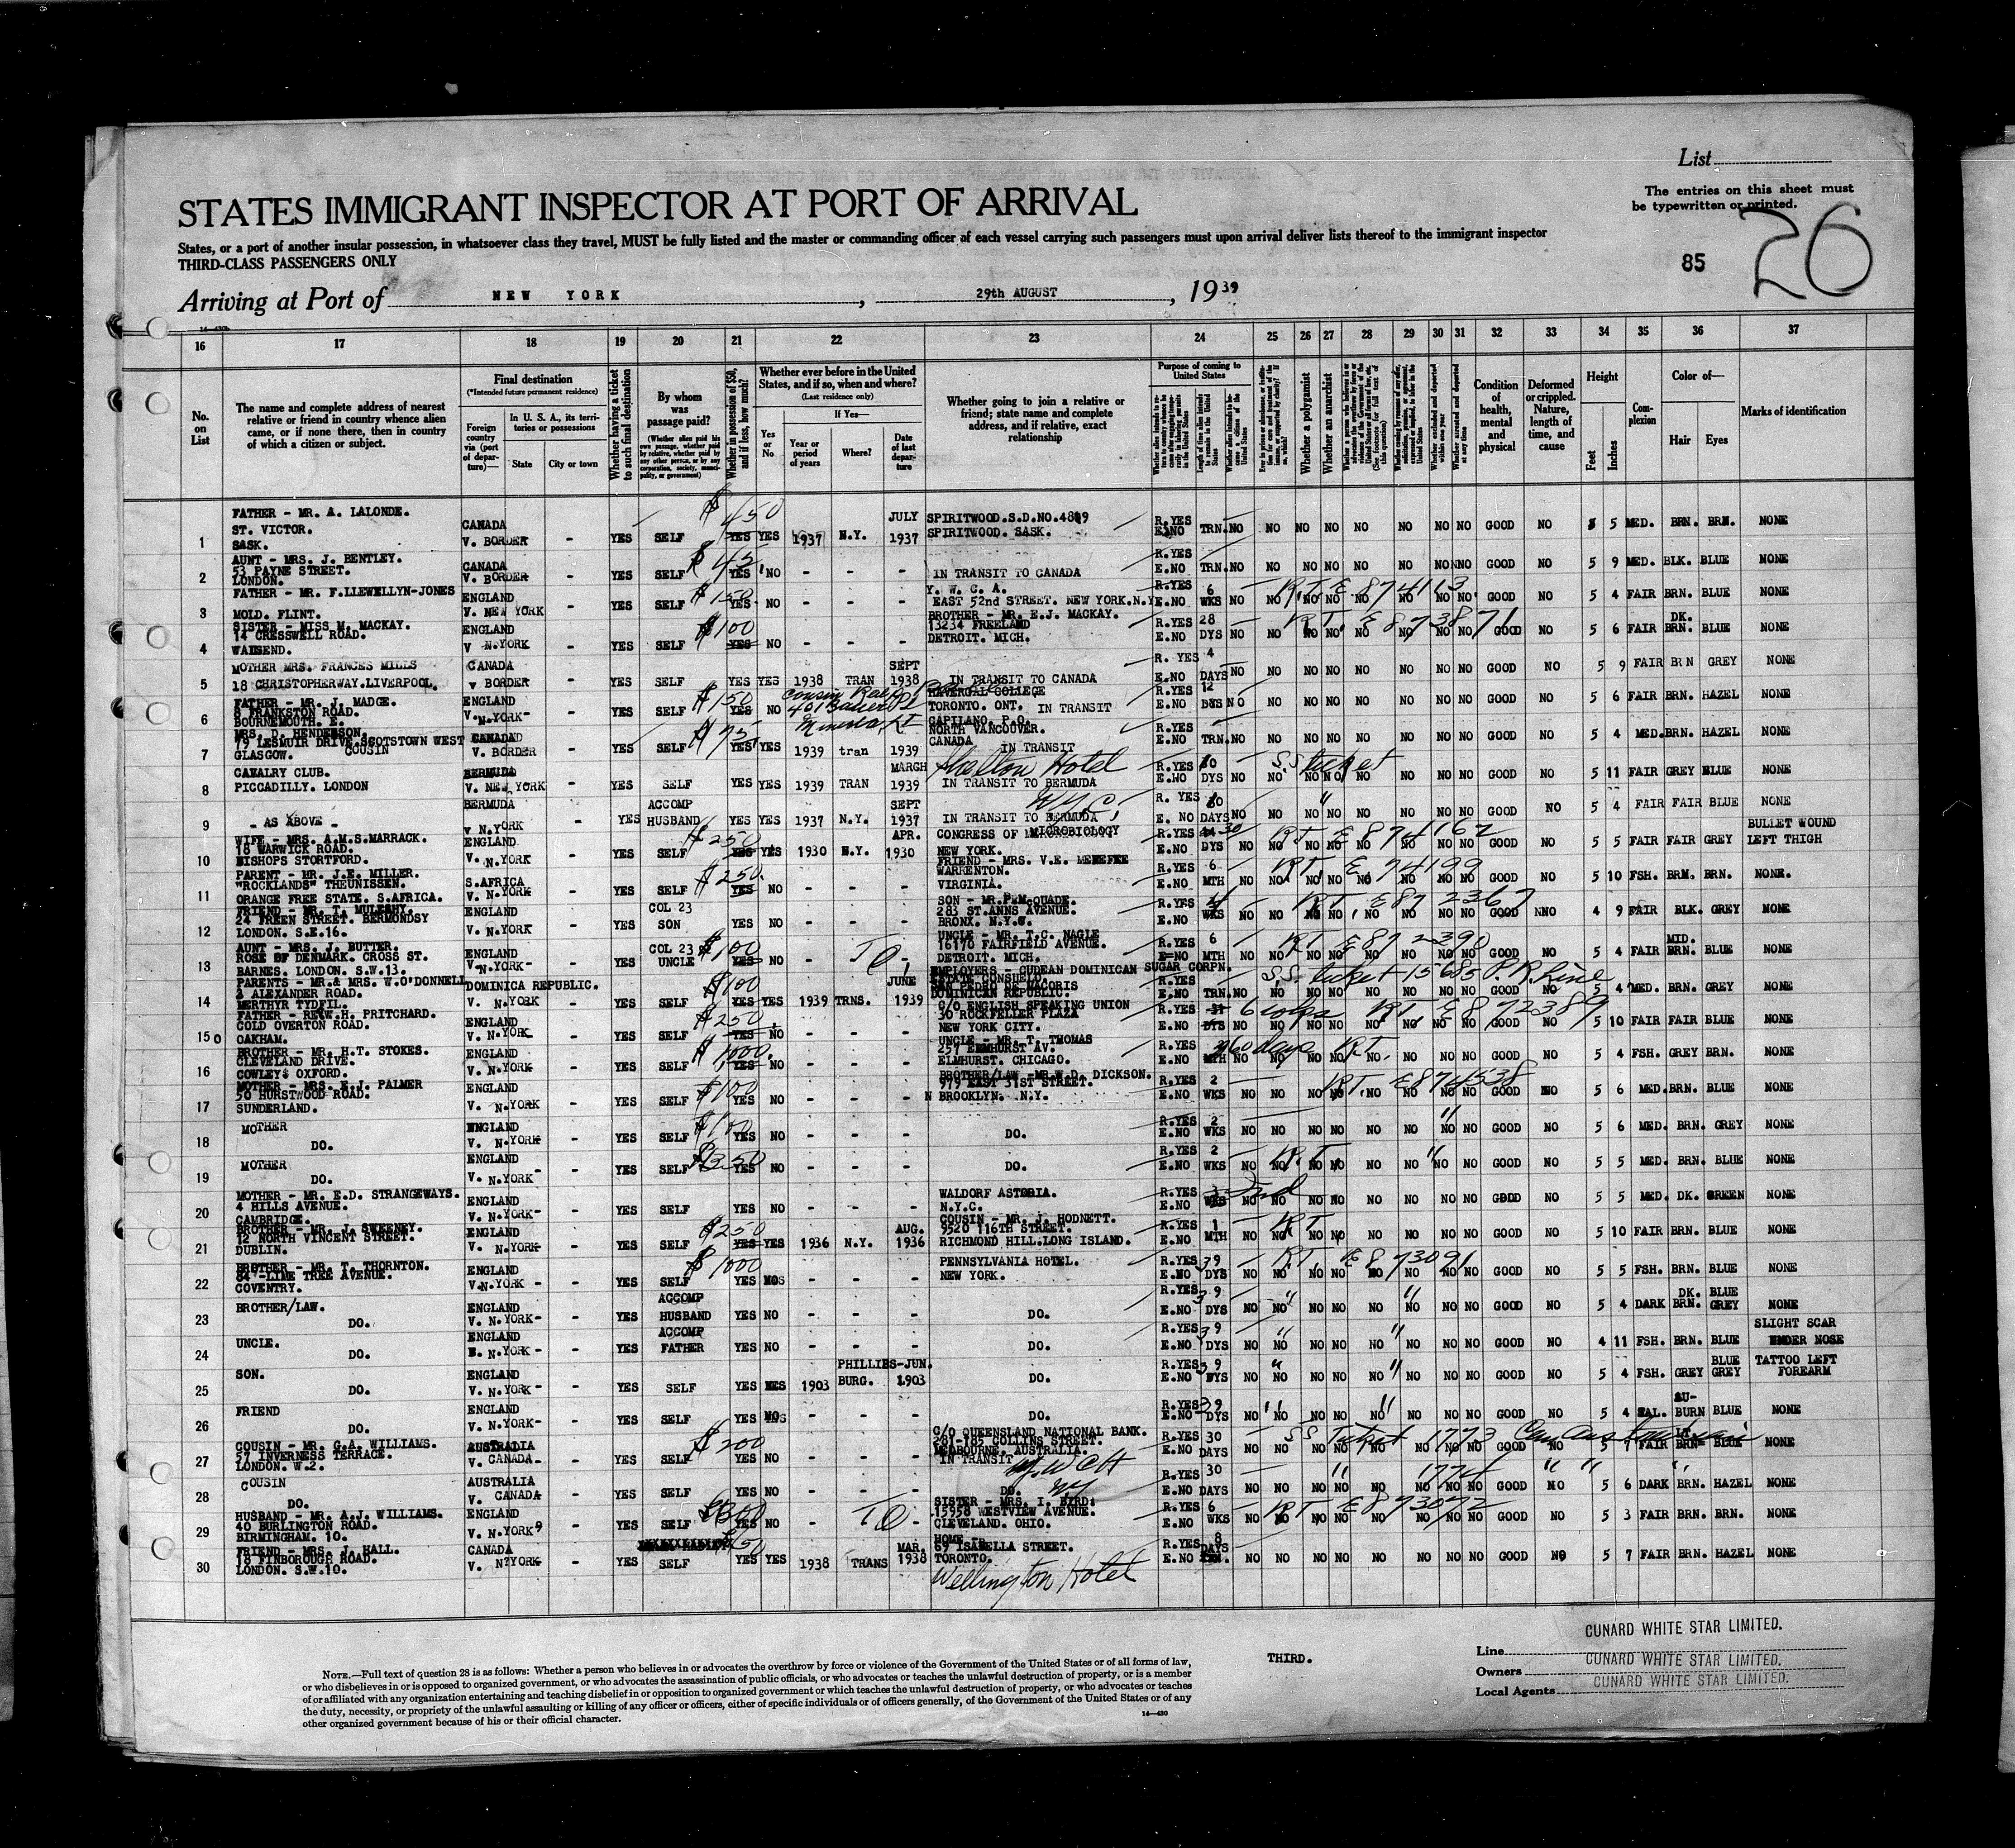 List
The entries on this sheet must
be typewritten or printed.
STATES IMMIGRANT INSPECTOR AT PORT OF ARRIVAL
States, or a port of another insular possession, in whatsoever class they travel, MUST be fully listed and the master or commanding officer of each vessel carrying such passengers must upon arrival deliver lists thereof to the immigrant inspector
THIRD-CLASS PASSENGERS ONLY
85
26
Arriving at Port of NEW YORK, 29th AUGUST, 1939
16 17 18 19 20 21 22 23 24 25 26 27 28 29 30 31 32 33 34 35 36 37
No. on List
The name and complete address of nearest relative or friend in country whence alien came, or if none there, then in country of which a citizen or subject.
Final destination
(*Intended future permanent residence)
Foreign country via (port of departure)—
In U. S. A., its territories or possessions
State
City or town
Whether having a ticket to such final destination
By whom was passage paid?
Whether in possession of $50, and if less, how much?
Whether ever before in the United States, and if so, when and where?
(Last residence only)
Yes or No
If Yes—
Year or period of years
Where?
Date of last departure
Whether going to join a relative or friend; state name and complete address, and if relative, exact relationship
Purpose of coming to United States
Whether a polygamist
Whether an anarchist
Condition of health, mental and physical
Deformed or crippled. Nature, length of time, and cause
Height
Feet
Inches
Complexion
Color of—
Hair
Eyes
Marks of identification
1 FATHER - MR. A. LALONDE. ST. VICTOR. SASK. CANADA V. BORDER - YES SELF $450 YES YES 1937 N.Y. JULY 1937 SPIRITWOOD.S.D.NO. SPIRITWOOD. SASK. R.YES E.NO TRN. NO NO NO NO NO NO NO NO GOOD NO 5 5 MED. BRN. BRN. NONE
2 AUNT - MRS. J. BENTLEY. 53 PAYNE STREET. LONDON. CANADA V. BORDER - YES SELF $45 YES NO - - - IN TRANSIT TO CANADA R.YES E.NO TRN. NO NO NO NO NO NO NO NO GOOD NO 5 9 MED. BLK. BLUE NONE
3 FATHER - MR. F.LLEWELLYN-JONES MOLD. FLINT. ENGLAND V. NEW YORK - YES SELF $150 YES NO - - - Y. W. C. A. EAST 52nd STREET. NEW YORK.N.Y. R.YES E.NO 6 WKS NO NO R.T. E 874113 NO GOOD NO 5 4 FAIR BRN. BLUE NONE
4 SISTER - MISS M. MACKAY. 14 CRESSWELL ROAD. ENGLAND V N.YORK - YES SELF $100 YES NO - - - BROTHER - MR. E.J. MACKAY. 13234 FREELAND DETROIT. MICH. R.YES E.NO 28 DYS NO NO R.T. E 873871 GOOD NO 5 6 FAIR DK. BRN. BLUE NONE
5 MOTHER MRS. FRANCES MILLS 18 CHRISTOPHERWAY.LIVERPOOL. CANADA v BORDER - YES SELF YES YES 1938 TRAN SEPT 1938 IN TRANSIT TO CANADA R. YES E.NO 4 DAYS NO NO NO NO NO NO NO NO GOOD NO 5 9 FAIR BRN GREY NONE
6 FATHER - MR. J. MADGE. 8 FRANKSTON ROAD. BOURNEMOUTH. E. ENGLAND V.N.YORK - YES SELF $150 YES NO cousin HAVERGAL COLLEGE TORONTO. ONT. IN TRANSIT R.YES E.NO 12 DYS NO NO NO NO NO NO NO NO GOOD NO 5 6 FAIR BRN. HAZEL NONE
7 MRS. D. HENDERSON. 79 LESMUIR DRIVE.SCOTSTOWN WEST GLASGOW. COUSIN CANADA V. BORDER - YES SELF $75 YES YES 1939 tran 1939 CAPILANO. P.O. NORTH VANCOUVER. CANADA IN TRANSIT R.YES E.NO TRN. NO NO NO NO NO NO NO NO GOOD NO 5 4 MED. BRN. HAZEL NONE
8 CAVALRY CLUB. PICCADILLY. LONDON BERMUDA V. NEW YORK - YES SELF YES YES 1939 TRAN MARCH 1939 Hotel IN TRANSIT TO BERMUDA R.YES E.NO DYS NO NO S.S. ticket NO GOOD NO 5 11 FAIR GREY BLUE NONE
9 - AS ABOVE - BERMUDA v N.YORK - YES ACCOMP HUSBAND YES YES 1937 N.Y. SEPT 1937 N.Y.C. IN TRANSIT TO BERMUDA R. YES E. NO DAYS NO NO " NO NO NO NO NO NO GOOD NO 5 4 FAIR FAIR BLUE NONE
10 WIFE - MRS. A.M.S.MARRACK. 18 WARWICK ROAD. BISHOPS STORTFORD. ENGLAND V. N.YORK - YES SELF $250 YES YES 1930 N.Y. APR. 1930 CONGRESS OF MICROBIOLOGY NEW YORK. R.YES E.NO 30 DYS NO NO R.T. E 874162 GOOD NO 5 5 FAIR FAIR GREY BULLET WOUND LEFT THIGH
11 PARENT - MR. J.E. MILLER. "ROCKLANDS" THEUNISSEN. ORANGE FREE STATE. S.AFRICA. S.AFRICA V. N.YORK - YES SELF $250. YES NO - - - FRIEND - MRS. V.E. MENEFEE WARRENTON. VIRGINIA. R.YES E.NO 6 MTH NO NO R.T. E 74199 GOOD NO 5 10 FSH. BRN. BRN. NONE.
12 FRIEND - MR. T. MULCAHY. 24 FREEN STREET. BERMONDSY LONDON. S.E.16. ENGLAND V. N.YORK - YES COL 23 SON YES NO - - - SON - MR.P.MCQUADE. 283 ST.ANNS AVENUE. BRONX. N.Y. R.YES E.NO WKS NO NO R.T. E 872367 GOOD NO 4 9 FAIR BLK. GREY NONE
13 AUNT - MRS. J. BUTTER. ROSE OF DENMARK. CROSS ST. BARNES. LONDON. S.W.13. ENGLAND V.N.YORK - YES COL 23 UNCLE $100 YES NO - TO - UNCLE - MR. T.C. NAGLE 16170 FAIRFIELD AVENUE. DETROIT. MICH. R.YES E.NO 6 MTH NO NO R.T. E 872390 GOOD NO 5 4 FAIR MID. BRN. BLUE NONE
14 PARENTS - MR.& MRS. W.O'DONNELL 3 ALEXANDER ROAD. MERTHYR TYDFIL. DOMINICA REPUBLIC. V. N.YORK - YES SELF $100 YES YES 1939 TRNS. JUNE 1939 EMPLOYERS - CUDEAN DOMINICAN SUGAR CORPN. ESTATE CONSUELO. SAN PEDRO DE MACORIS DOMINICAN REPUBLIC. R.YES E.NO TRN. NO NO S.S. ticket 15685 P.R. Line GOOD NO 5 4 MED. BRN. GREY NONE
15 FATHER - REV.W.H. PRITCHARD. COLD OVERTON ROAD. OAKHAM. ENGLAND V. N.YORK - YES SELF $250. YES NO - - - C/O ENGLISH SPEAKING UNION 30 ROCKFELLER PLAZA NEW YORK CITY. R.YES E.NO DYS NO NO R.T. E 872389 GOOD NO 5 10 FAIR FAIR BLUE NONE
16 BROTHER - MR. H.T. STOKES. CLEVELAND DRIVE. COWLEY$ OXFORD. ENGLAND V. N.YORK - YES SELF $1000. YES NO - - - UNCLE - MR. T. THOMAS 257 ELMHURST AV. ELMHURST. CHICAGO. R.YES E.NO MTH 60 days R.T. NO GOOD NO 5 4 FSH. GREY BRN. NONE
17 MOTHER - MRS. E.J. PALMER 50 HURSTWOOD ROAD. SUNDERLAND. ENGLAND V. N.YORK - YES SELF $100 YES NO - - - BROTHER/LAW -MR.W.D. DICKSON. 979 EAST 31ST STREET. BROOKLYN. N.Y. R.YES E.NO 2 WKS NO NO R.T. E 874538 GOOD NO 5 6 MED. BRN. BLUE NONE
18 MOTHER DO. ENGLAND V. N.YORK - YES SELF $100 YES NO - - - DO. R.YES E.NO 2 WKS NO NO NO NO NO NO " NO NO GOOD NO 5 6 MED. BRN. GREY NONE
19 MOTHER DO. ENGLAND V. N.YORK - YES SELF $350 YES NO - - - DO. R.YES E.NO 2 WKS NO NO R.T. NO NO NO " NO NO GOOD NO 5 5 MED. BRN. BLUE NONE
20 MOTHER - MR. E.D. STRANGEWAYS. 4 HILLS AVENUE. CAMBRIDGE. ENGLAND V. N.YORK - YES SELF YES NO - - - WALDORF ASTORIA. N.Y.C. R.YES E.NO WKS NO NO NO NO NO NO NO NO GOOD NO 5 5 MED. DK. GREEN NONE
21 BROTHER - MR. J. SWEENEY. 12 NORTH VINCENT STREET. DUBLIN. ENGLAND V. N.YORK - YES SELF $250 YES YES 1936 N.Y. AUG. 1936 COUSIN - MR. J. HODNETT. 9520 116TH STREET. RICHMOND HILL.LONG ISLAND. R.YES E.NO 1 MTH NO NO R.T. NO NO NO NO NO NO GOOD NO 5 10 FAIR BRN. BLUE NONE
22 BROTHER - MR. T. THORNTON. 84 -LIME TREE AVENUE. COVENTRY. ENGLAND V.N.YORK - YES SELF $1000 YES NO - - - PENNSYLVANIA HOTEL. NEW YORK. R.YES E.NO 39 DYS NO NO R.T. E 873091 GOOD NO 5 5 FSH. BRN. BLUE NONE
23 BROTHER/LAW. DO. ENGLAND V. N.YORK - YES ACCOMP HUSBAND YES NO - - - DO. R.YES E.NO 39 DYS NO NO " NO NO NO " NO NO NO GOOD NO 5 4 DARK DK. BRN. BLUE GREY NONE
24 UNCLE. DO. ENGLAND N.YORK - YES ACCOMP FATHER YES NO - - - DO. R.YES E.NO 39 DYS NO NO " NO NO NO " NO NO NO GOOD NO 4 11 FSH. BRN. BLUE SLIGHT SCAR UNDER NOSE
25 SON. DO. ENGLAND V. N.YORK - YES SELF YES YES 1903 PHILLIPS-BURG. JUN. 1903 DO. R.YES E.NO 39 DYS NO NO " NO NO NO " NO NO NO GOOD NO 5 4 FSH. GREY BLUE GREY TATTOO LEFT FOREARM
26 FRIEND DO. ENGLAND V. N.YORK - YES SELF YES NO - - - DO. R.YES E.NO 39 DYS NO NO " NO NO NO " NO NO NO GOOD NO 5 4 SAL. AU-BURN BLUE NONE
27 COUSIN - MR. G.A. WILLIAMS. 57 INVERNESS TERRACE. LONDON. W.2. AUSTRALIA V. CANADA - YES SELF $200 YES NO - - - C/O QUEENSLAND NATIONAL BANK. COLLINS STREET. MELBOURNE. AUSTRALIA. IN TRANSIT R.YES E.NO 30 DAYS NO NO S.S. Ticket 1773 GOOD NO 5 FAIR BRN BLUE NONE
28 COUSIN DO. AUSTRALIA V. CANADA - YES SELF YES NO - - - DO. NY R.YES E.NO 30 DAYS NO NO " 1774 " " " GOOD NO 5 6 DARK BRN. HAZEL NONE
29 HUSBAND - MR. A.J. WILLIAMS. 40 BURLINGTON ROAD. BIRMINGHAM. 10. ENGLAND V. N.YORK - YES SELF $300 YES NO - TO - SISTER - MRS. I. BYRD. 15958 WESTVIEW AVENUE. CLEVELAND. OHIO. R.YES E.NO 6 WKS NO NO R.T. E 873072 GOOD NO 5 3 FAIR BRN. BRN. NONE
30 FRIEND - MRS. J. HALL. 18 FINBOROUGH ROAD. LONDON. S.W.10. CANADA V. N.YORK - YES SELF $50 YES YES 1938 TRANS MAR. 1938 HOME - 69 ISABELLA STREET. TORONTO. Wellington Hotel R.YES E.NO 8 DAYS NO NO NO NO NO NO NO NO GOOD NO 5 7 FAIR BRN. HAZEL NONE
NOTE.—Full text of question 28 is as follows: Whether a person who believes in or advocates the overthrow by force or violence of the Government of the United States or of all forms of law,
or who disbelieves in or is opposed to organized government, or who advocates the assassination of public officials, or who advocates or teaches the unlawful destruction of property, or is a member
of or affiliated with any organization entertaining and teaching disbelief in or opposition to organized government or which teaches the unlawful destruction of property, or who advocates or teaches
the duty, necessity, or propriety of the unlawful assaulting or killing of any officer or officers, either of specific individuals or of officers generally, of the Government of the United States or of any
other organized government because of his or their official character.
14—430
THIRD.
Line CUNARD WHITE STAR LIMITED.
Owners CUNARD WHITE STAR LIMITED.
Local Agents CUNARD WHITE STAR LIMITED.